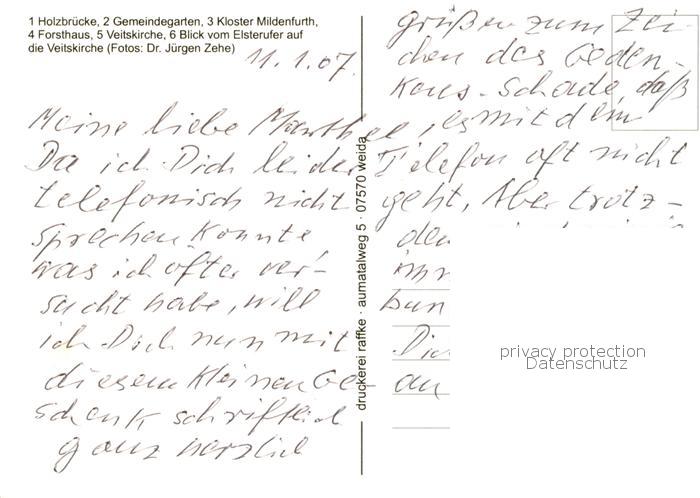 1 Holzbrücke, 2 Gemeindegarten, 3 Kloster Mildenfurth,
4 Forsthaus, 5 Veitskirche, 6 Blick vom Elsterufer auf
die Veitskirche (Fotos: Dr. Jürgen Zehe)
11.1.07.
Meine liebe
Da ich Dich leider
telefonisch nicht
sprechen konnte
was ich öfter ver-
sucht habe, will
ich Dich nun mit
diesem kleinen Ge-
schenk schriftlich
ganz herzlich
druckerei raffke · aumatalweg 5 · 07570 weida
grüßen zum Zei-
chen des Geden-
kens. Schade, daß
es mit dem
Telefon oft nicht
geht, Aber trotz-
dem
imm
bun
Dich
an
privacy protection
Datenschutz